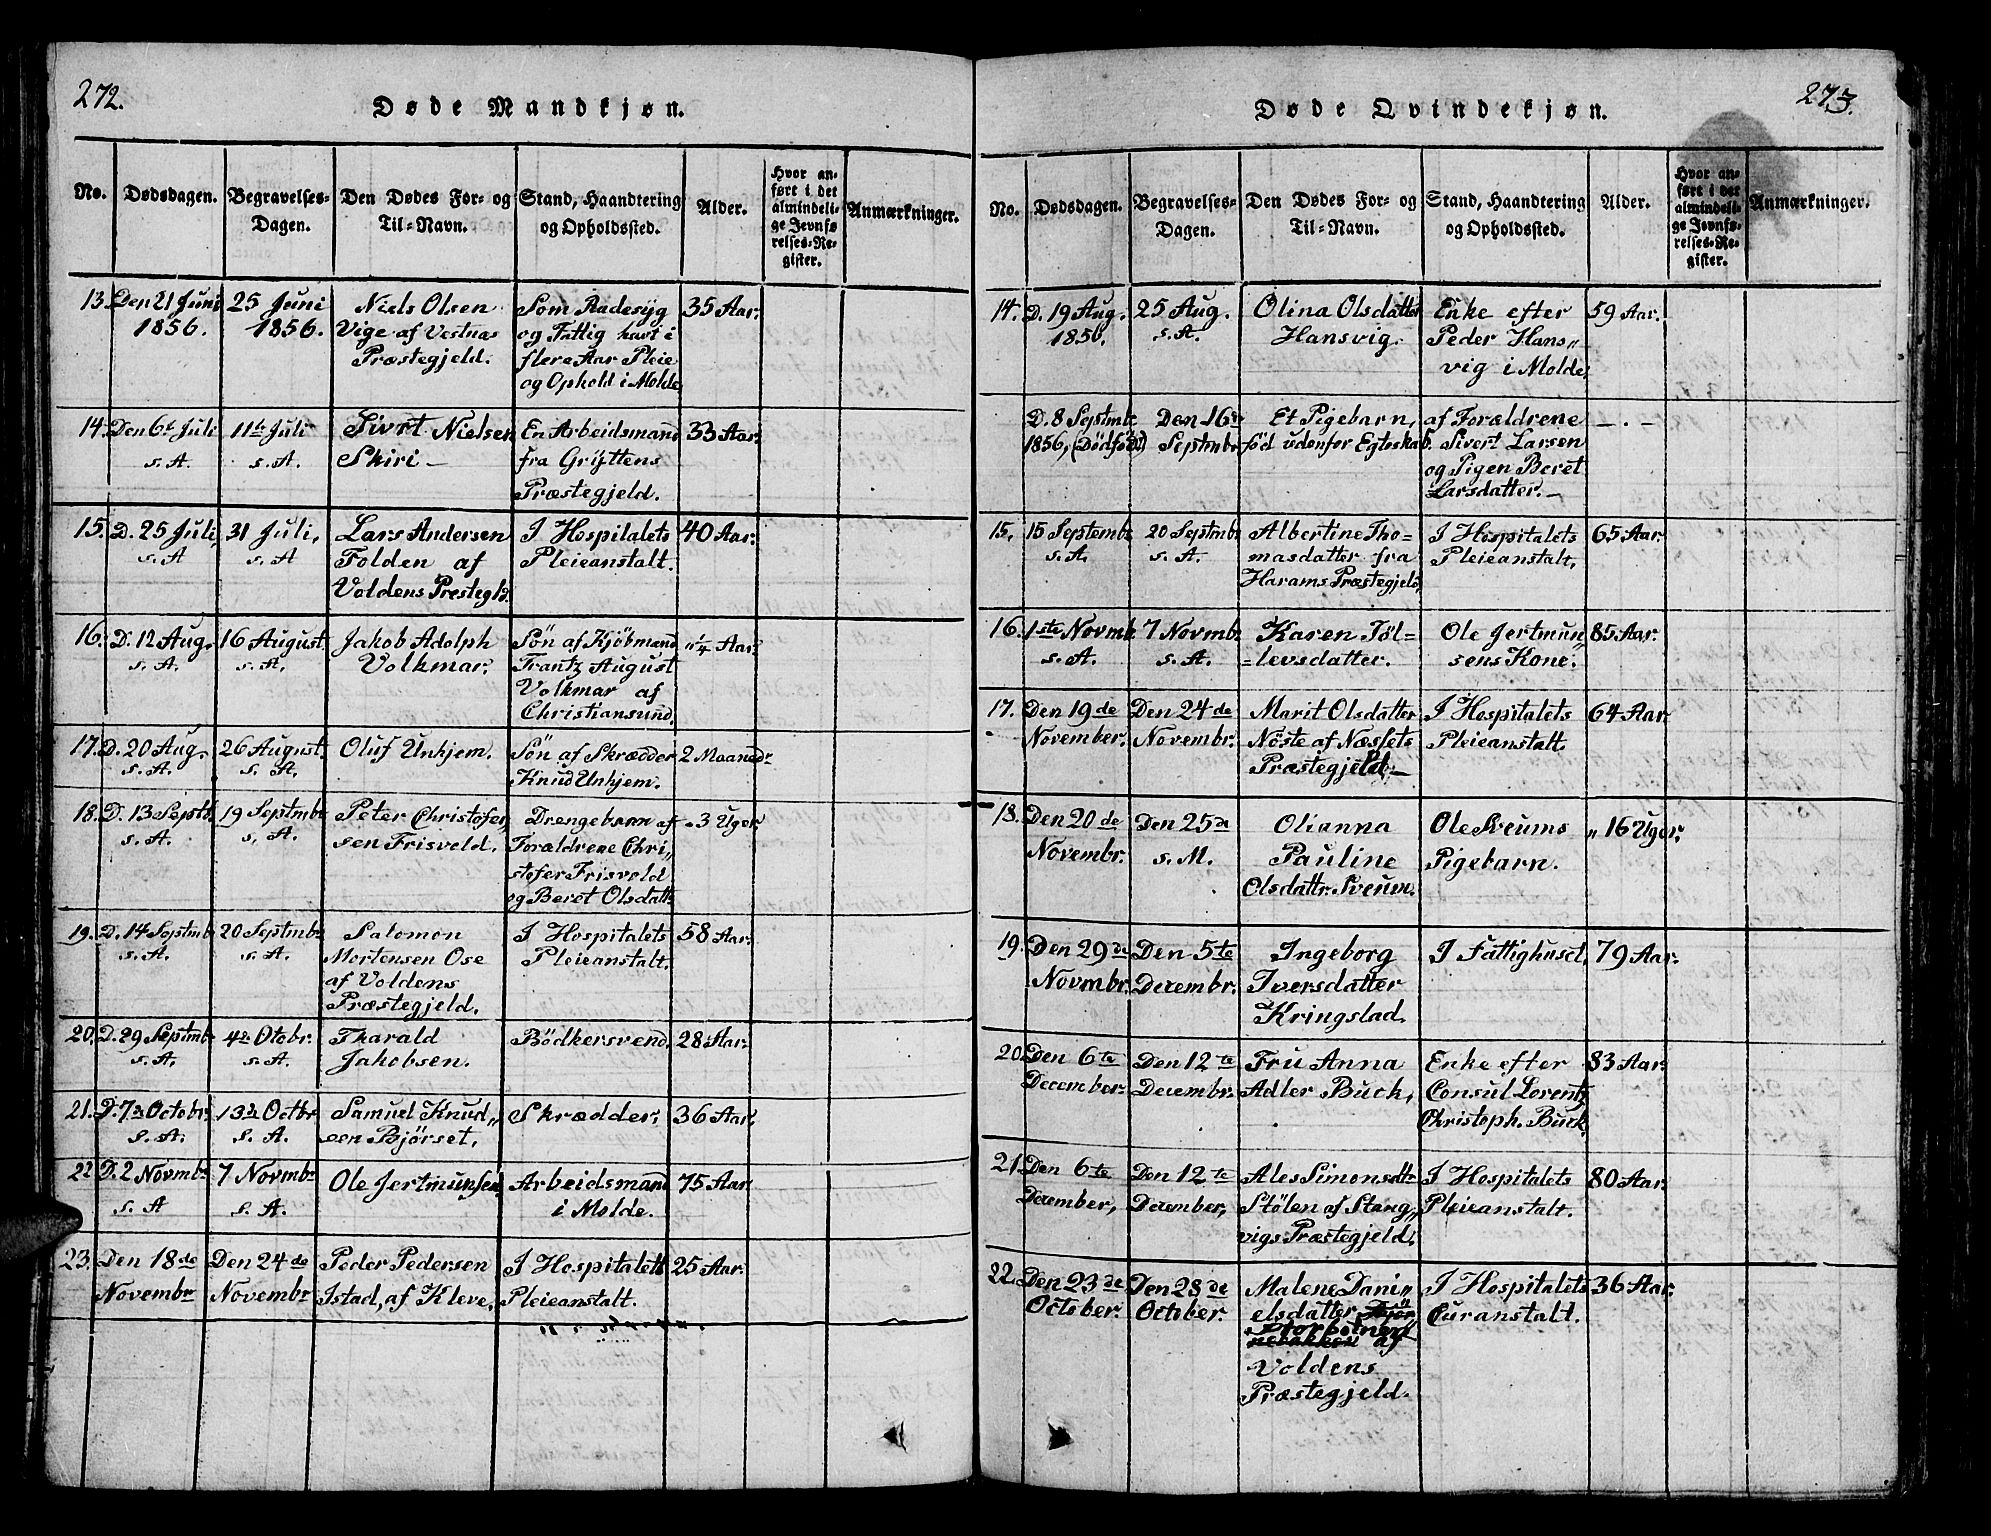 272.
Døde Mandkjøn.
No.
Dødsdagen.
Begravelses-
Dagen.
Den Dødes For- og
Til-Navn.
Stand, Haandtering
og Opholdssted.
Alder.
Hvor an-
ført i det
almindeli-
ge Jevnfø-
relses-Re-
gister.
Anmærkninger.
13. Den 21 Juni 25 Juni Niels Olsen Som Radesyg 35 Aar.
1856. 1856. Vige af Vestnas og Fattig havt i
Præstegjeld. flere Aar Pleie
og Ophold i Molde
14. Den 6te Juli 11te Juli Sivrt Nielsen En Arbeidsmand 33 Aar.
s. A. s. A. Skiri – fra Gryttens
Præstegjeld.
15. D. 25 Juli, 31 Juli, Lars Andersen I Hospitalets 40 Aar.
s. A s. A Folden af Pleieanstalt.
Voldens Prestegld.
16. D. 12 Aug. 16 August Jakob Adolph Søn af Kjøbmand „ 1/4 Aar.
s. A. s. A. Volkmar. Frantz August
Volkmar af
Christiansund.
17. D. 20 Aug. 26 August. Oluf Unhjem. Søn af Skrædder 2 Maaned
s. A. s. A. Knud Unhjem.
18. D. 13 Septb. 19 Septmbr Peter Christofer Drengebarn af „ 3 Uger
s. A. s, A. sen Frisvold. Forældrene Chri„
stofer Frisvold
og Beret Olsdatt
19. D. 14 Septmb 20 Septmbr Salomon I Hospitalets 58 Aar.
s. A. s. A. Mortensen Ose Pleieanstalt.
af Voldens
Præstegjeld.
20. D. 29 Septmbr 4de Otobr. Tharald Bødkersvend, 28 Aar.
s. A. s. A. Jakobsen.
21. D. 7de Octobr. 13de Octbr Samuel Knud„ Skrædder, 36 Aar.
s. A. s. A. sen Bjørset,
22 D. 2 Novmbr 7 Novmbr Ole Jertmunsen, Arbeidsmand 75 Aar
s. A s. A. i Molde.
23. Den 18de Den 24de Peder Pedersen I Hospitalets 25 Aar.
Novembr Novembr Istad, af Kleve, Pleieanstalt.
273.
Døde Qvindekjøn.
No.
Dødsdagen.
Begravelses-
Dagen.
Den Dødes For- og
Til-Navn.
Stand, Haandtering
og Opholdssted.
Alder.
Hvor an-
ført i det
almindeli-
ge Jevnfø-
relses-Re-
gister.
Anmærkninger.
14. D. 19 Aug. 25 Aug. Olina Olsdatter Enke efter 59 Aar.
1856. s. A. Hansvig. Peder Hans„
vig i Molde,
D. 8 Septmbr Den 16de Et Pigebarn, af Forældrene – . –
1856, (Dødfødt) Septmbr. fød udenfor Egteskab. Sivert Larsen
og Pigen Beret
Larsdatter. –
15. 15 Septemb 20 Septmbr Albertine Tho- I Hospitalets 65 Aar.
s. A. s. A. masdatter fra Pleieanstalt,
Harams Præstegjeld,
16. 1ste Novmb. 7 Novmbr Karen Tøl- Ole Jertmun„ 85 Aar.
s. A. s. A. =levsdatter. sens Kone.
17. Den 19de Den 24de Marit Olsdatter I Hospitalets 64 Aar.
November. Novembr. Nøste af Næssets Pleieanstalt.
Præstegjeld. –
18. Den 20de Den 25de Olianna Ole Sveums „ 16 Uger.
Novembr. s. M. Pauline Pigebarn.
Olsdattr. Sveum.
19. Den 29de Den 5te Ingeborg I Fattighuset. 79 Aar.
Novmbr. Decembr. Iversdatter
Kringstad.
20. Den 6te Den 12te Fru Anna Enke efter 83 Aar.
December. Decembr. Adler Buck, Consul Lorentz
Christoph. Buck.
21. Den 6te Den 12te Ales Simonsdtr I Hospitalets 80 Aar.
December, December, Stølen af Stang„ Pleieanstalt.
vigs Præstegjeld,
22. Den 23de Den 28de Malene Dani„ I Hospitalets 36 Aar.
October. October. elsdatter Curanstalt.
af
Voldens
Præstegjeld.